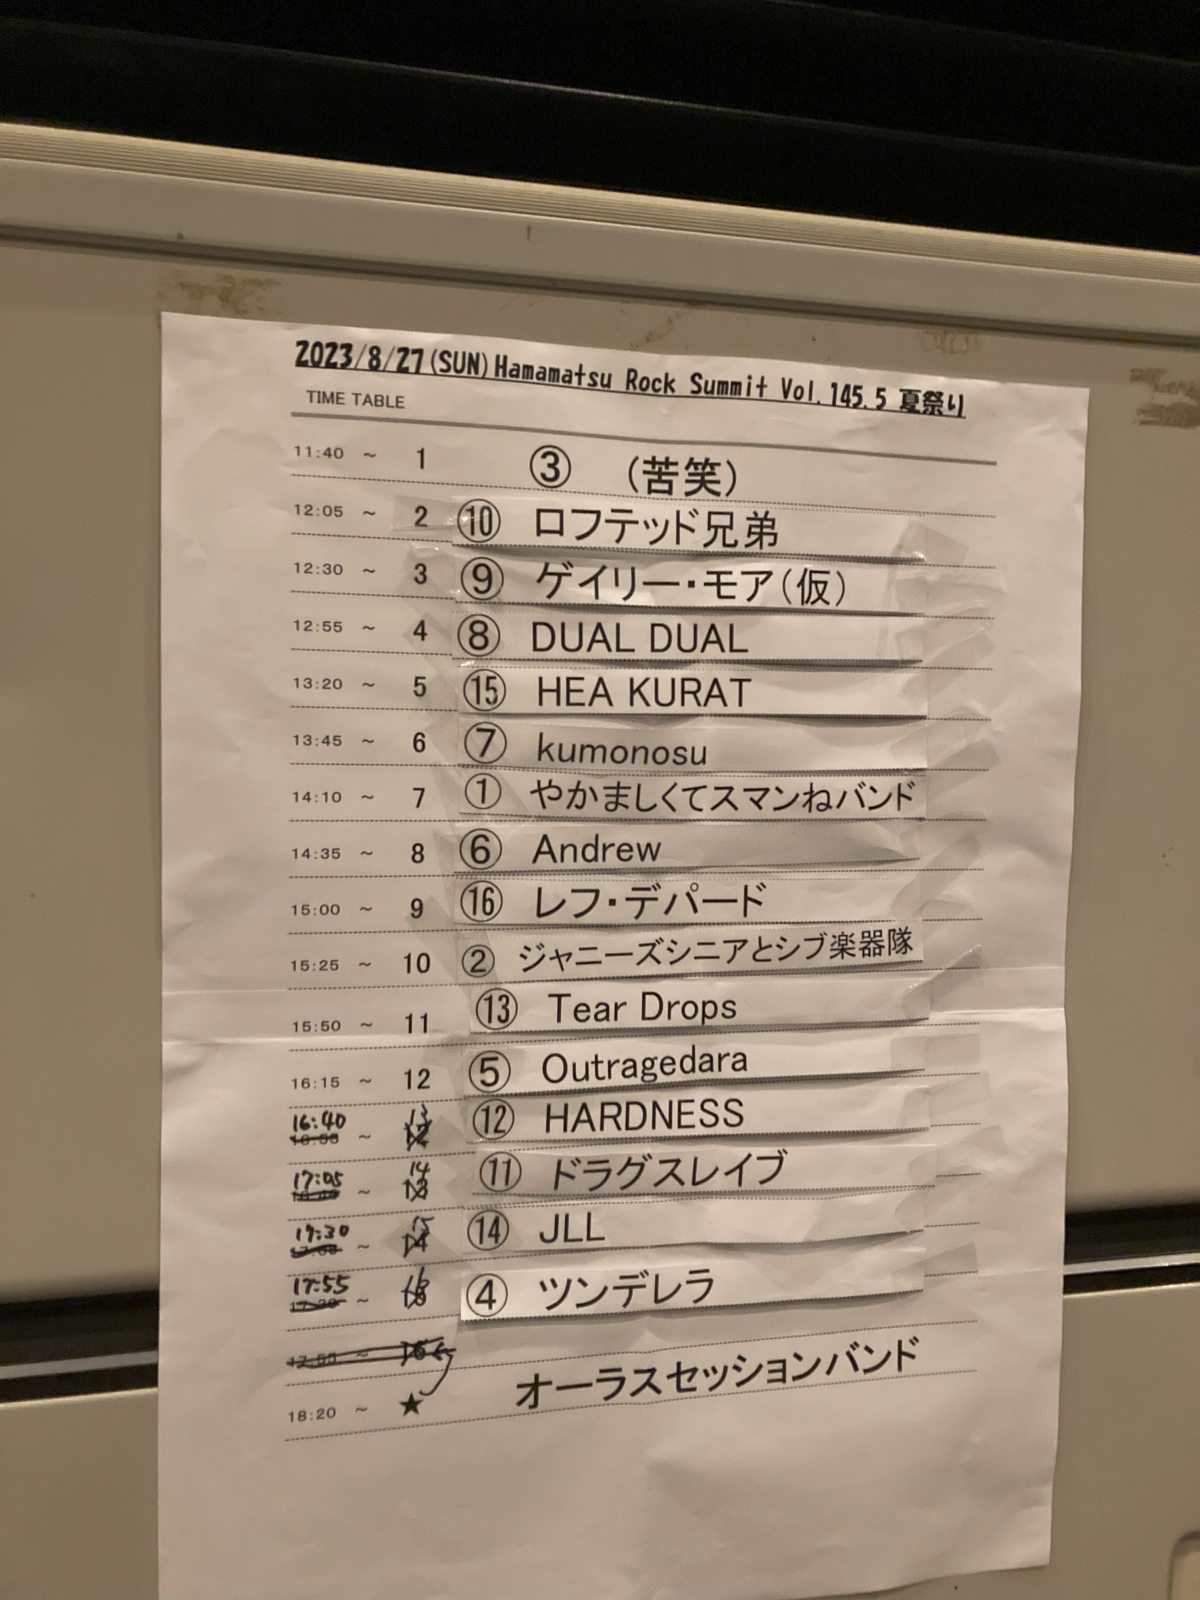 2023/8/27(SUN)Hamamatsu Rock Summit Vol.145.5 夏祭り
TIME TABLE
11:40 ~ 1 ③ (苦笑)
12:05 ~ 2 ⑩ ロフテッド兄弟
12:30 ~ 3 ⑨ ゲイリー・モア(仮)
12:55 ~ 4 ⑧ DUAL DUAL
13:20 ~ 5 ⑮ HEA KURAT
13:45 ~ 6 ⑦ kumonosu
14:10 ~ 7 ① やかましくてスマンねバンド
14:35 ~ 8 ⑥ Andrew
15:00 ~ 9 ⑯ レフ・デパード
15:25 ~ 10 ② ジャニーズシニアとシブ楽器隊
15:50 ~ 11 ⑬ Tear Drops
16:15 ~ 12 ⑤ Outragedara
16:40 ~ 13 ⑫ HARDNESS
17:05 ~ 14 ⑪ ドラグスレイブ
17:30 ~ 15 ⑭ JLL
17:55 ~ 16 ④ ツンデレラ
18:20 ~ ★ オーラスセッションバンド